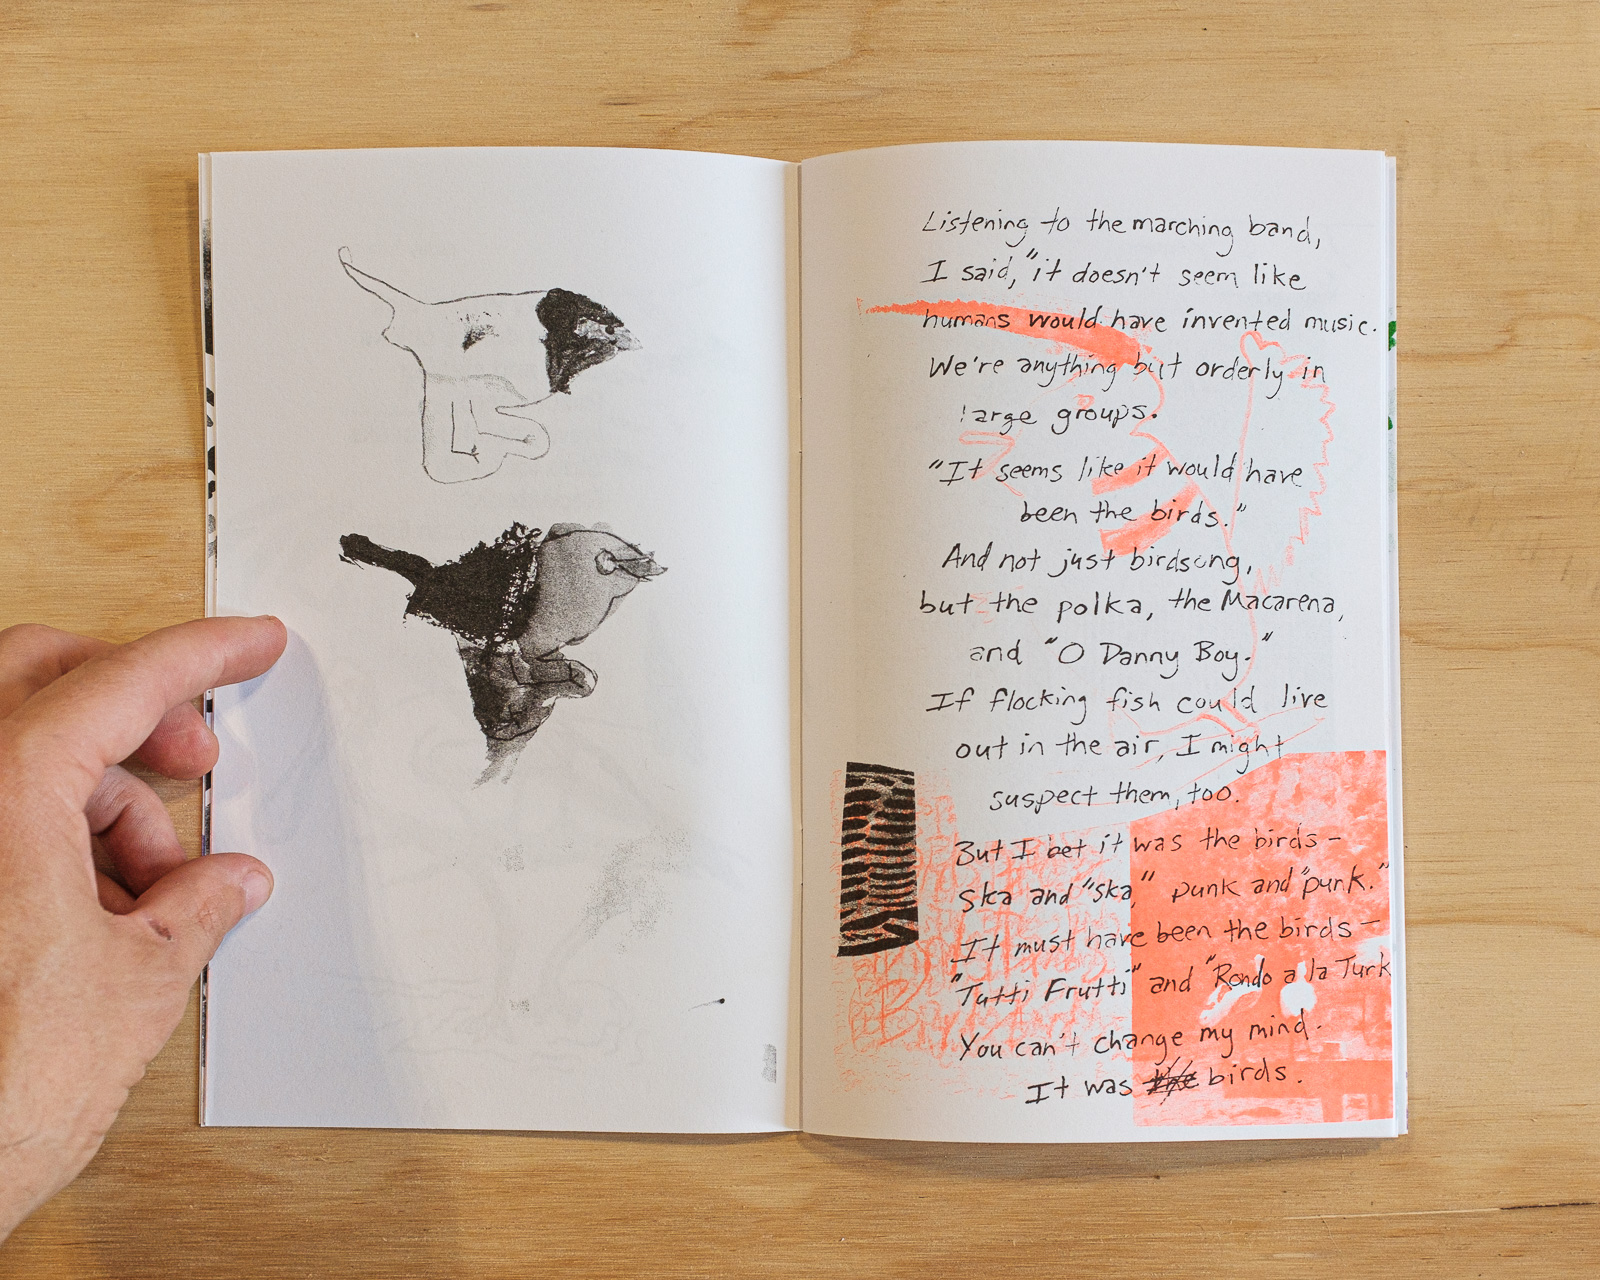 Listening to the marching band,
I said, "it doesn't seem like
humans would have invented music.
We're anything but orderly in
large groups.
"It seems like it would have
been the birds."
And not just birdsong,
but the polka, the Macarena,
and "O Danny Boy."
If flocking fish could live
out in the air, I might
suspect them, too.
But I bet it was the birds –
Ska and "ska," punk and "punk."
It must have been the birds –
"Tutti Frutti" and "Rondo a la Turk
You can't change my mind.
It was birds.